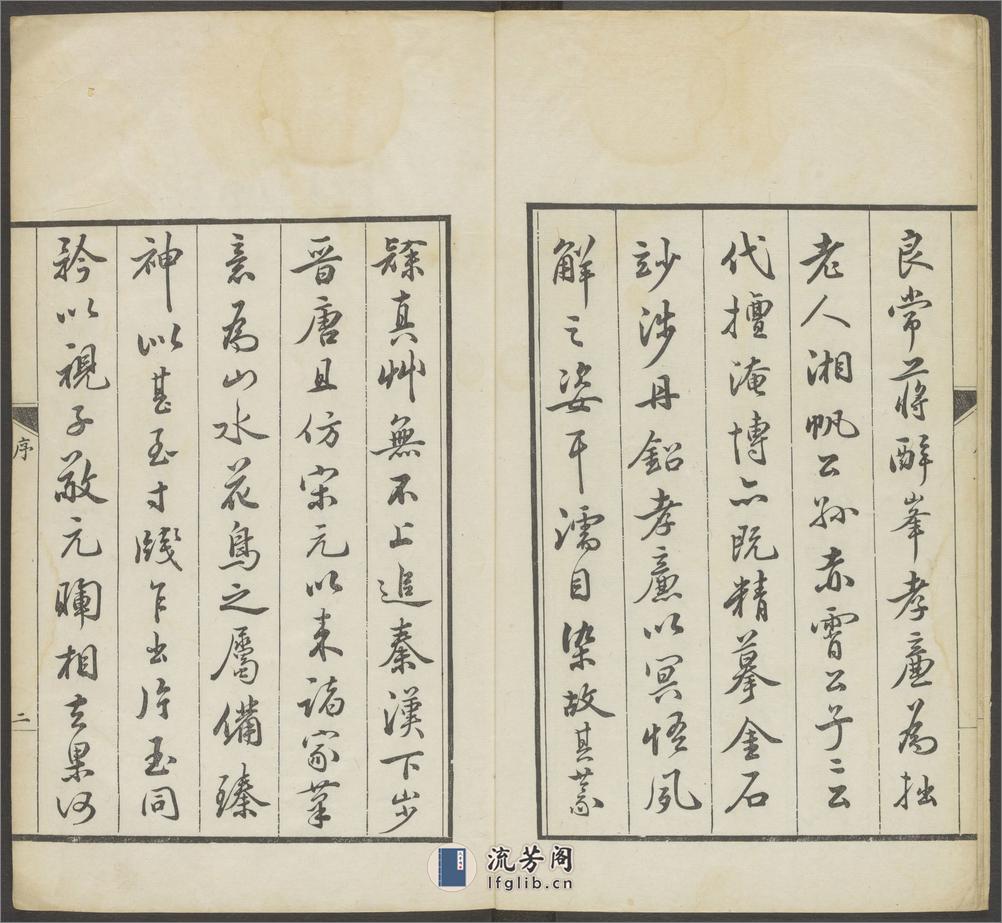 良常蔣醉峯孝廉為拙
老人湘帆公孫赤霄公子二公
代擅淹博亦既精摹金石
妙涉丹鉛孝廉以冥悟夙
解之姿耳濡目染故其篆
隸真艸無不上追秦漢下步
晉唐且仿宋元以来諸家筆
意為山水花鳥之屬備臻
神似甚至寸牋乍出片玉同
矜以視子敬元相去果何
序
二
流芳阁
lfglib.cn